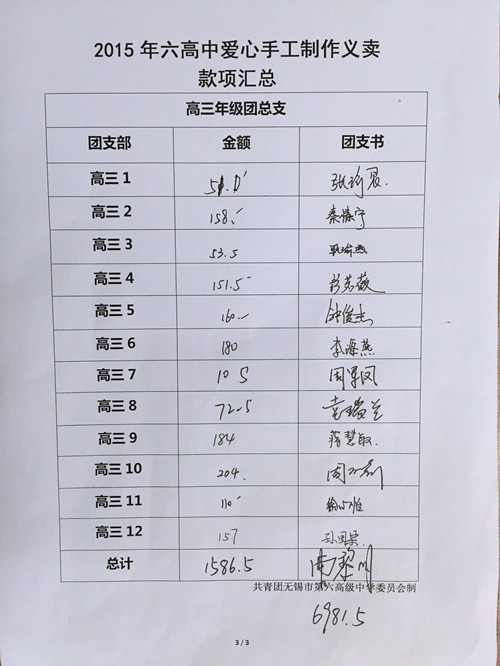 2015 年六高中爱心手工制作义卖
款项汇总
高三年级团总支
团支部 金额 团支书
高三 1 51.0
高三 2 158.
高三 3 53.5
高三 4 151.5
高三 5 160 钟俊杰
高三 6 180 李海燕
高三 7 105 周军凤
高三 8 72.5 袁瑞兰
高三 9 184 蒋慧敏
高三 10 204.
高三 11 110
高三 12 157
总计 1586.5
共青团无锡市第六高级中学委员会制
6981.5
3 / 3